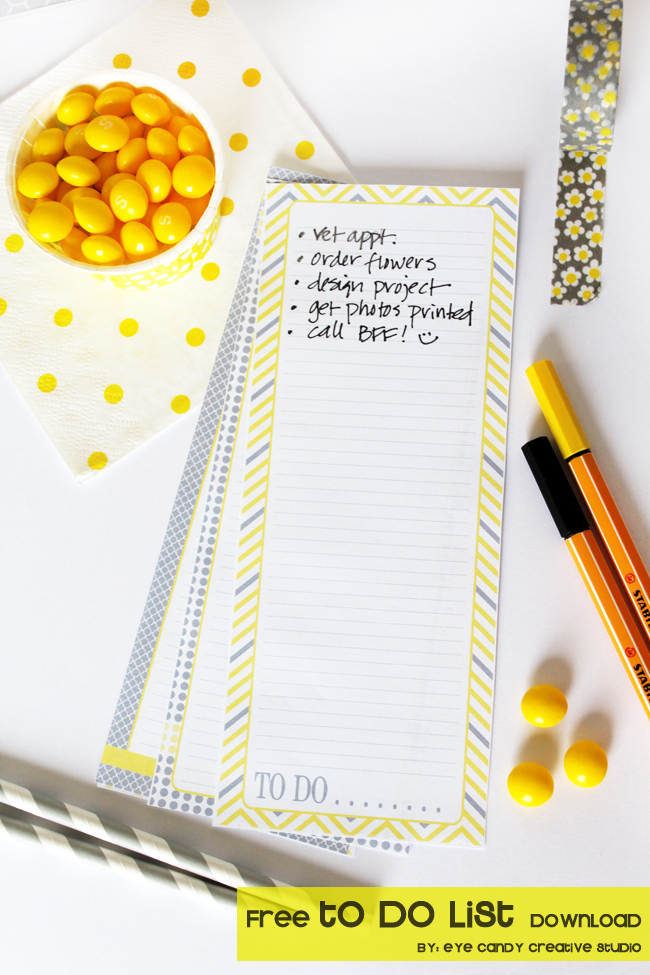 • vet appt.
• order flowers
• design project
• get photos printed
• call BFF! :)
TO DO ........
STABI
STABI
Free TO DO LIST DOWNLOAD
BY: EYE CANDY CREATIVE STUDIO